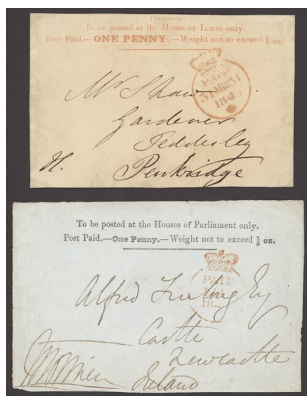 (Temporary)
To be posted at the House of Lords only.
Post Paid.—ONE PENNY.—Weight not to exceed ½ oz.
PAID
Mr Shaw
Gardener
Teddesley
H.
Penkridge
To be posted at the Houses of Parliament only.
Post Paid.—One Penny.—Weight not to exceed ½ oz.
PAID
Alfred
Castle
Newcastle
Ireland